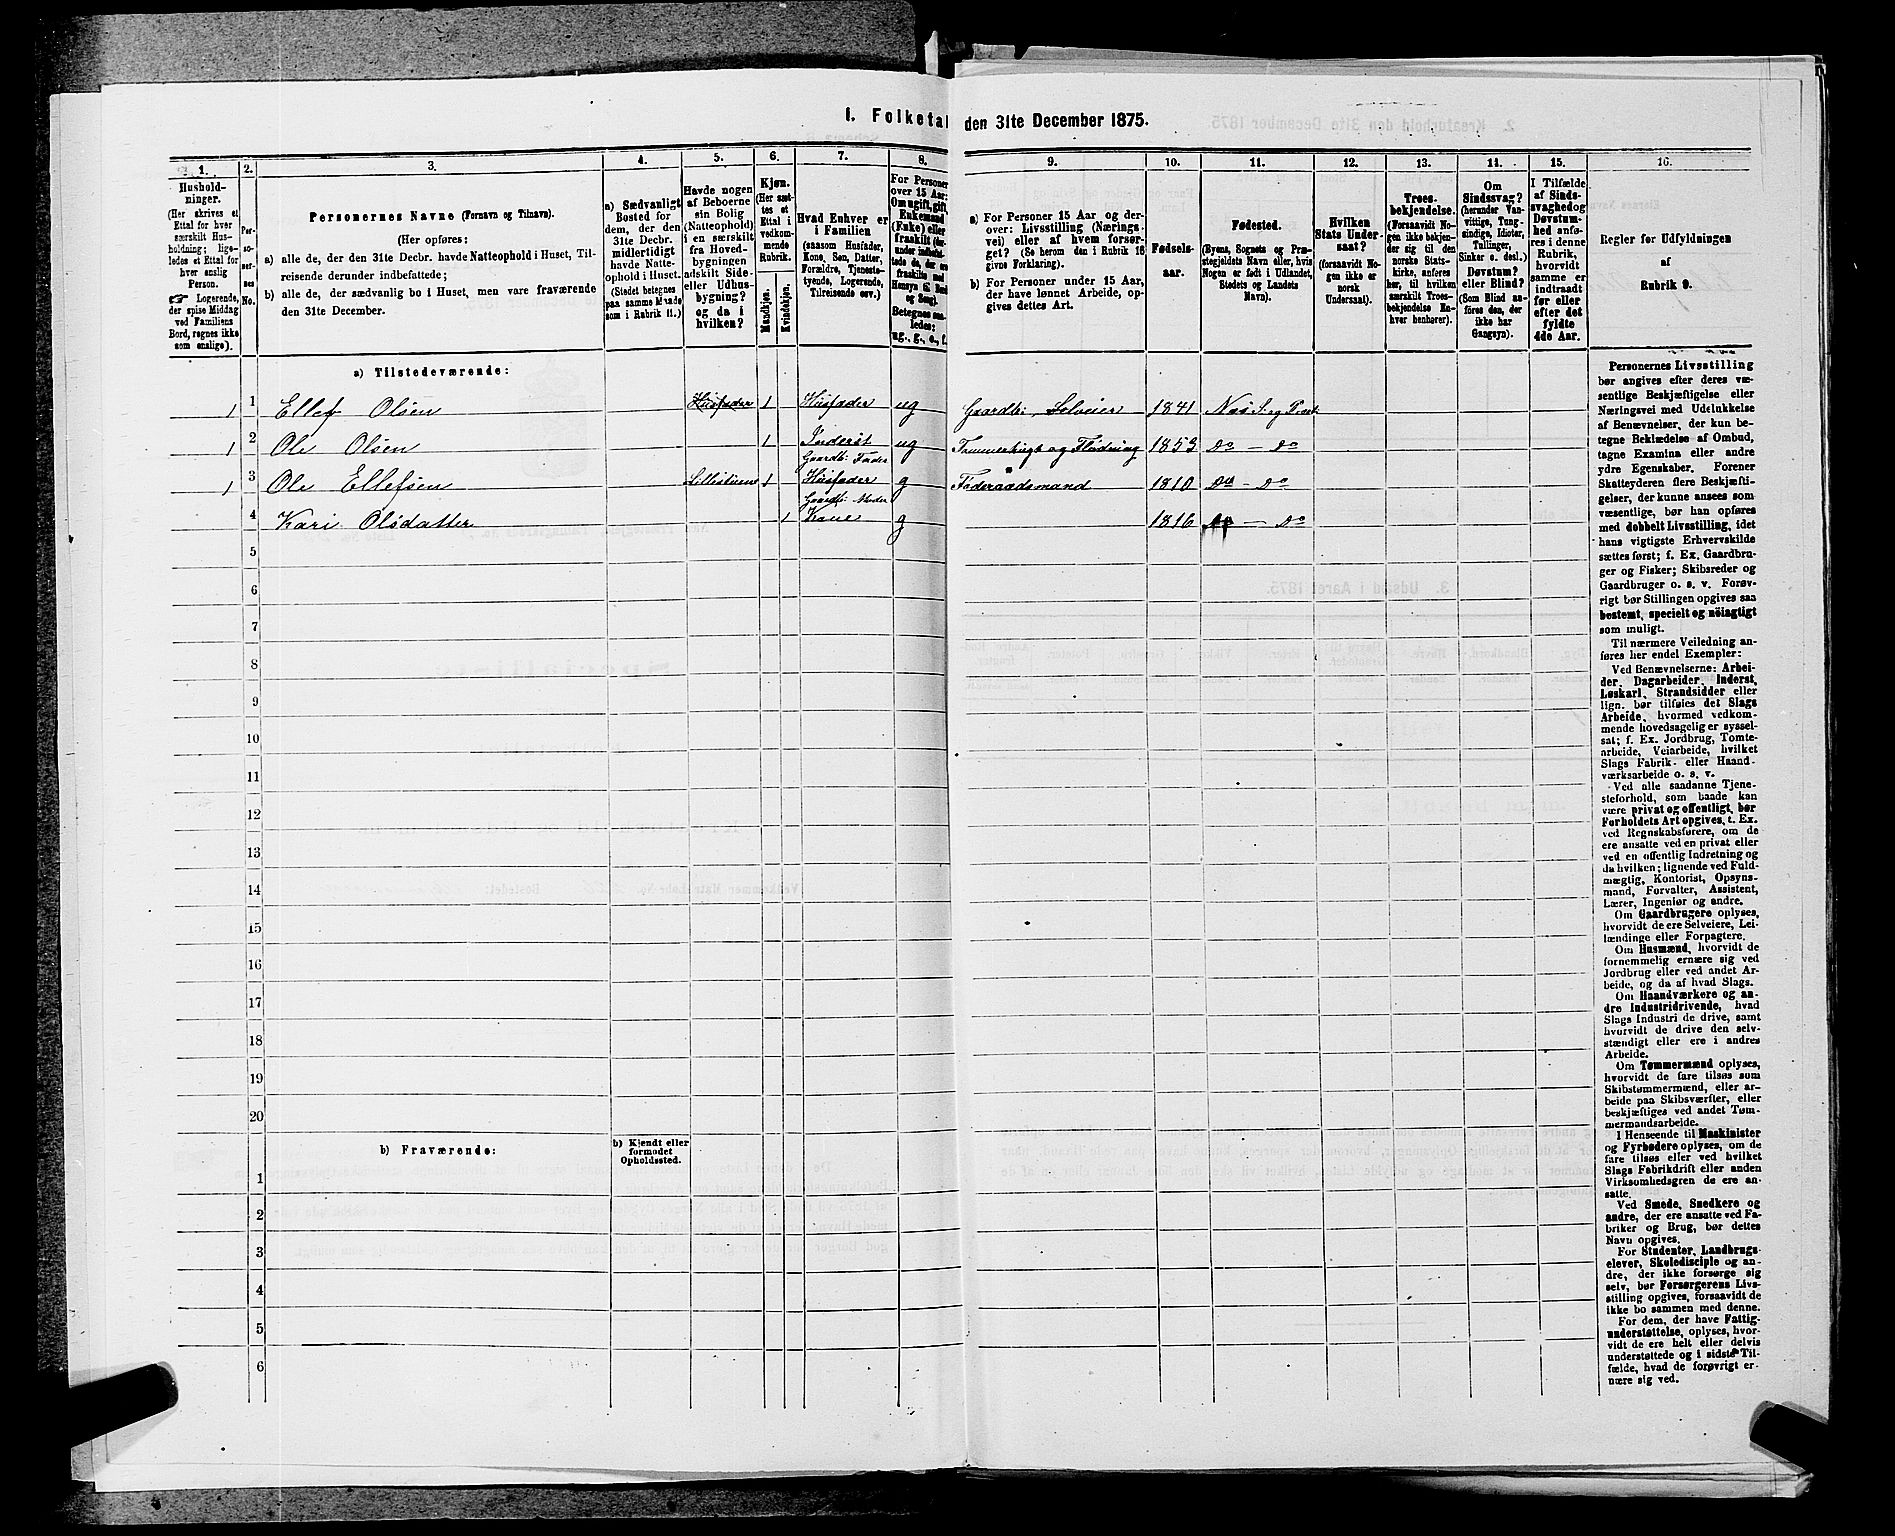 1. Folketal den 31te December 1875.
1.
Hushold-
ninger.
(Her skrives et
Ettal for hver
særskilt Hus-
holdning; lige-
ledes et Ettal for
hver enslig
Person.
☛ Logerende,
der spise Middag
ved Familiens
Bord, regnes ikke
som enslige).
2.
Per-
so-
ner-
nes
No.
3.
Personernes Navne (Fornavn og Tilnavn).
(Her opføres:
a) alle de, der den 31te Decbr. havde Natteophold i Huset, Til-
reisende derunder indbefattede;
b) alle de, der sædvanlig bo i Huset, men vare fraværende
den 31te December.
4.
a) Sædvanligt
Bosted for
dem, der den
31te Decbr.
midlertidigt
havde Natte-
ophold i Huset.
(Stedet betegnes
paa samme Maade
som i Rubrik 11.)
5.
Havde nogen
af Beboerne
sin Bolig
(Natteophold)
i en særskilt
fra Hoved-
bygningen
adskilt Side-
eller Udhus-
bygning?
og da i
hvilken?
6.
Kjøn.
(Her sæt-
tes et
Ettal i
vedkom-
mende
Rubrik.
Mandkjøn.
Kvindekjøn.
7.
Hvad Enhver er
i Familien
(saasom Husfader,
Kone, Søn, Datter,
Forældre, Tjeneste-
tyende, Logerende,
Tilreisende osv.)
8.
For Personer
over 15 Aar:
Om ugift, gift,
Enkemand
(Enke) eller
fraskilt
Betegnes saa-
ledes:
ug., g., e., f.
9.
a) For Personer 15 Aar og der-
over: Livsstilling (Nærings-
vei) eller af hvem forsør-
get? (Se herom den i Rubrik 16
givne Forklaring).
b) For Personer under 15 Aar,
der have lønnet Arbeide, op-
gives dettes Art.
10.
Fødsels-
aar.
11.
Fødested.
(Byens, Sognets og Præ-
stegjeldets Navn eller, hvis
Nogen er født i Udlandet,
Stedets og Landets
Navn).
12.
Hvilken
Stats Under-
saat?
(forsaavidt No-
gen ikke er
norsk
Undersaat).
13.
Troes-
bekjendelse.
(Forsaavidt No-
gen ikke bekjen-
der sig til den
norske Stats-
kirke, anføres
her, til hvilken
særskilt Troes-
bekjendelse En-
hver henhører).
14.
Om
Sindssvag?
(herunder Van-
vittige, Tung-
sindige, Idioter,
Tullinger,
Sinker o. desl.)
Døvstum?
eller Blind?
(Som Blind an-
føres den, der
ikke har
Gangsyn).
15.
I Tilfælde
af Sinds-
svaghed og
Døvstum-
hed anfø-
res i denne
Rubrik,
hvorvidt
samme er
indtraadt
før eller
efter det
fyldte
4de Aar.
16.
Regler for Udfyldningen
af
Rubrik 9.
a) Tilstedeværende:
1 1 Ellef Olsen Husfader 1 Husfader ug Gaardbr. Selveier 1841 Næs S. og Præst.
1 2 Ole Olsen 1 Inderst ug Tømmerhugst og Flødning 1853 Do — Do
Gaardbr. Fader
1 3 Ole Ellefsen 1 Husfader g Føderaadsmand 1810 Do — Do
Gaardbr. Moder
4 Kari Olsdatter 1 Kone g 1816 Do — Do
5
6
7
8
9
10
11
12
13
14
15
16
17
18
19
20
b) Fraværende:
b) Kjendt eller
formodet
Opholdssted.
1
2
3
4
5
6
Personernes Livsstilling
bør angives efter deres væ-
sentlige Beskjæftigelse eller
Næringsvei med Udelukkelse
af Benævnelser, der kun be-
tegne Beklædelse af Ombud,
tagne Examina eller andre
ydre Egenskaber. Forener
Skatteyderen flere Beskjæfti-
gelser, der kunne ansees som
væsentlige, bør han opføres
med dobbelt Livsstilling, idet
hans vigtigste Erhvervskilde
sættes først; f. Ex. Gaardbru-
ger og Fisker; Skibsreder og
Gaardbruger o. s. v. Forøv-
rigt bør Stillingen opgives saa
bestemt, specielt og nöiagtigt
som muligt.
Til nærmere Veiledning an-
føres her endel Exempler:
Ved Benævnelserne: Arbei-
der, Dagarbeider, Inderst,
Løskarl, Strandsidder eller
lign. bør tilføies det Slags
Arbeide, hvormed vedkom-
mende hovedsagelig er syssel-
sat; f. Ex. Jordbrug, Tomte-
arbeide, Veiarbeide, hvilket
Slags Fabrik- eller Haand-
værksarbeide o. s. v.
Ved alle saadanne Tjene-
steforhold, som baade kan
være privat og offentligt, bør
Forholdets Art opgives, t. Ex.
ved Regnskabsførere, om de
ere ansatte ved en privat eller
ved en offentlig Indretning og
da hvilken; lignende ved Fuld-
mægtig, Kontorist, Opsyns-
mand, Forvalter, Assistent,
Lærer, Ingeniør og andre.
Om Gaardbrugere oplyses,
hvorvidt de ere Selveiere, Lei-
lændinge eller Forpagtere.
Om Husmænd, hvorvidt de
fornemmelig ernære sig ved
Jordbrug eller ved andet Ar-
beide, og da af hvad Slags.
Om Haandværkere og an-
dre Industridrivende, hvad
Slags Industri de drive, samt
hvorvidt de drive den selv-
stændigt eller ere i andres
Arbeide.
Om Tømmermænd oplyses,
hvorvidt de fare tilsøs som
Skibstømmermænd, eller ar-
beide paa Skibsværfter, eller
beskjæftiges ved andet Tøm-
mermandsarbeide.
I Henseende til Maskinister
og Fyrbødere oplyses, om de
fare tilsøs eller ved hvilket
Slags Fabrikdrift eller anden
Virksomhedsgren de ere an-
satte.
Ved Smede, Snedkere og
andre, der ere ansatte ved Fa-
briker og Brug, bør dettes
Navn opgives.
For Studenter, Landbrugs-
elever, Skoledisciple og an-
dre, der ikke forsørge sig
selv, bør Forsørgerens Livs-
stilling opgives, forsaavidt de
ikke bo sammen med denne.
For dem, der have Fattig-
understøttelse, oplyses, hvor-
vidt de ere helt eller delvis
understøttede og i sidste Til-
fælde, hvad de forøvrigt er-
nære sig ved.